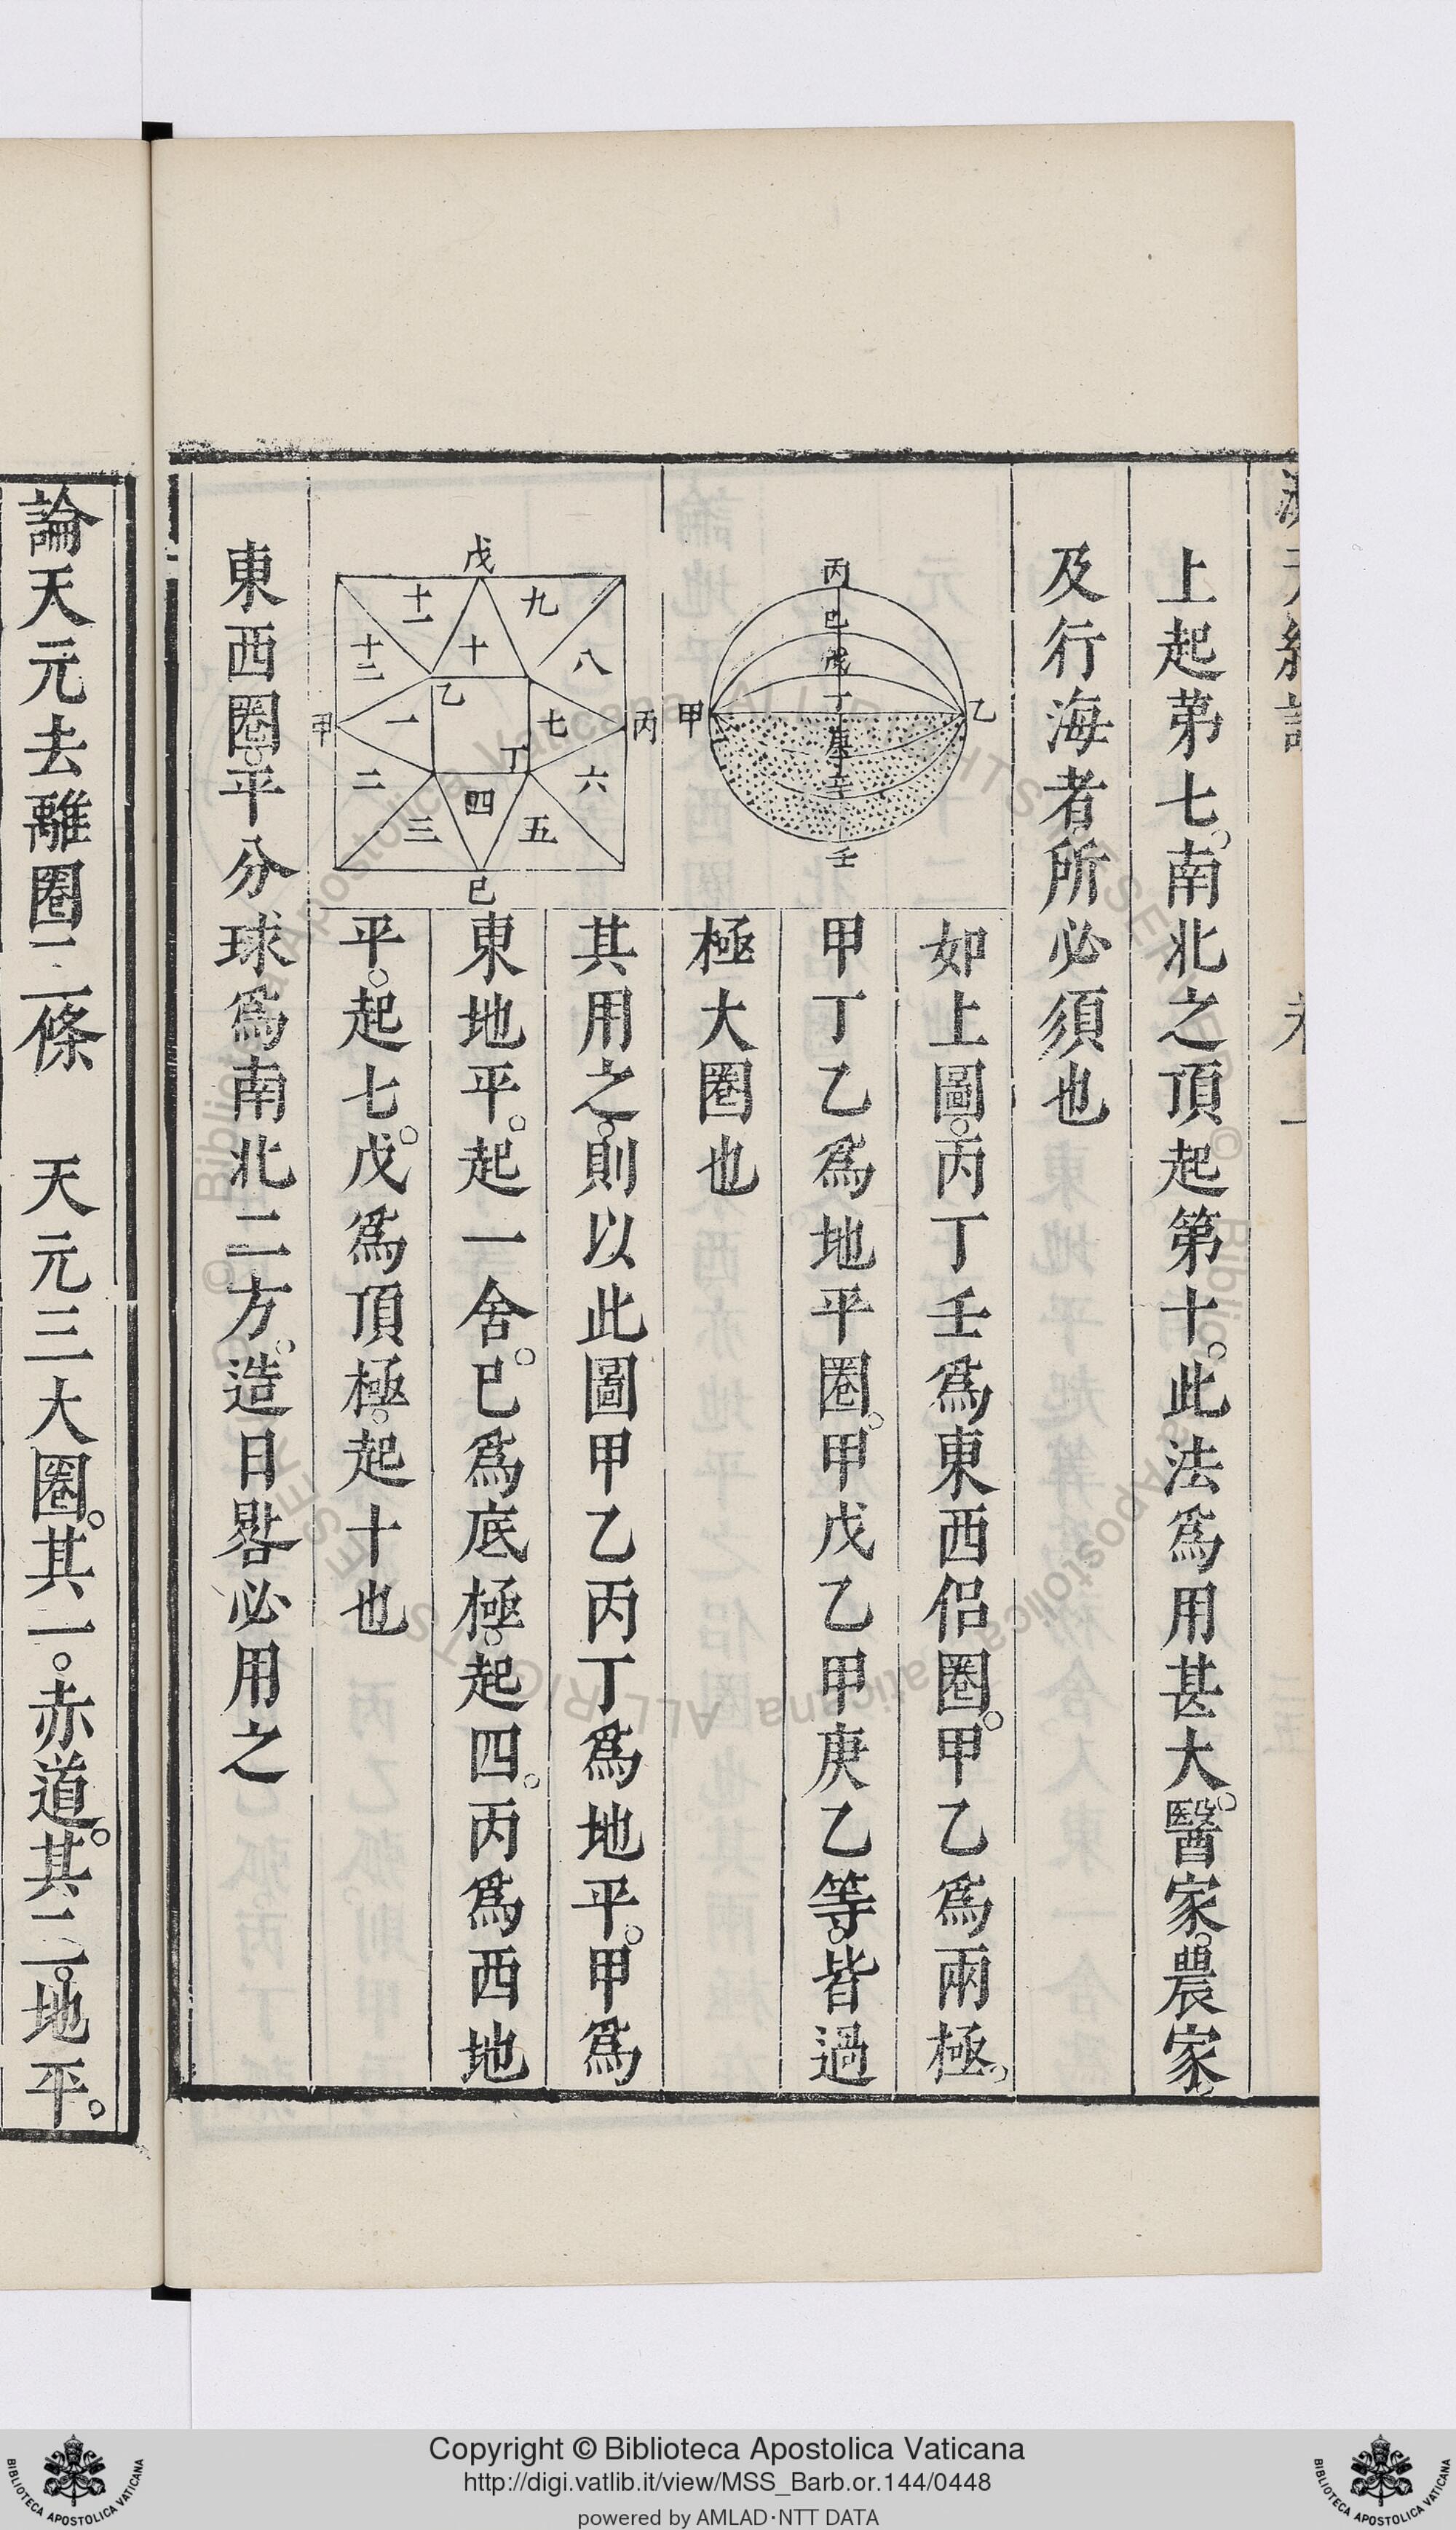 上起第七。南北之頂起第十。此法為用甚大。醫家。農家。
及行海者所必須也
丙
巳
戊
丁
庚
辛
壬
甲
乙
如上圖。丙丁壬為東西侶圈。甲乙為兩極。
甲丁乙為地平圈。甲戊乙甲庚乙等。皆過
極大圈也
戊
九
八
七
六
五
四
三
二
一
十二
十一
十
甲
乙
丙
丁
己
其用之。則以此圖甲乙丙丁為地平。甲為
東地平。起一舍。巳為底極。起四。丙為西地
平。起七。戊為頂極。起十也
東西圈。平分球為南北二方。造日晷必用之
論天元去離圈二條　天元三大圈。其一。赤道。其二。地平。
Copyright © Biblioteca Apostolica Vaticana
http://digi.vatlib.it/view/MSS_Barb.or.144/0448
powered by AMLAD·NTT DATA
BIBLIOTECA APOSTOLICA VATICANA
BIBLIOTECA APOSTOLICA VATICANA